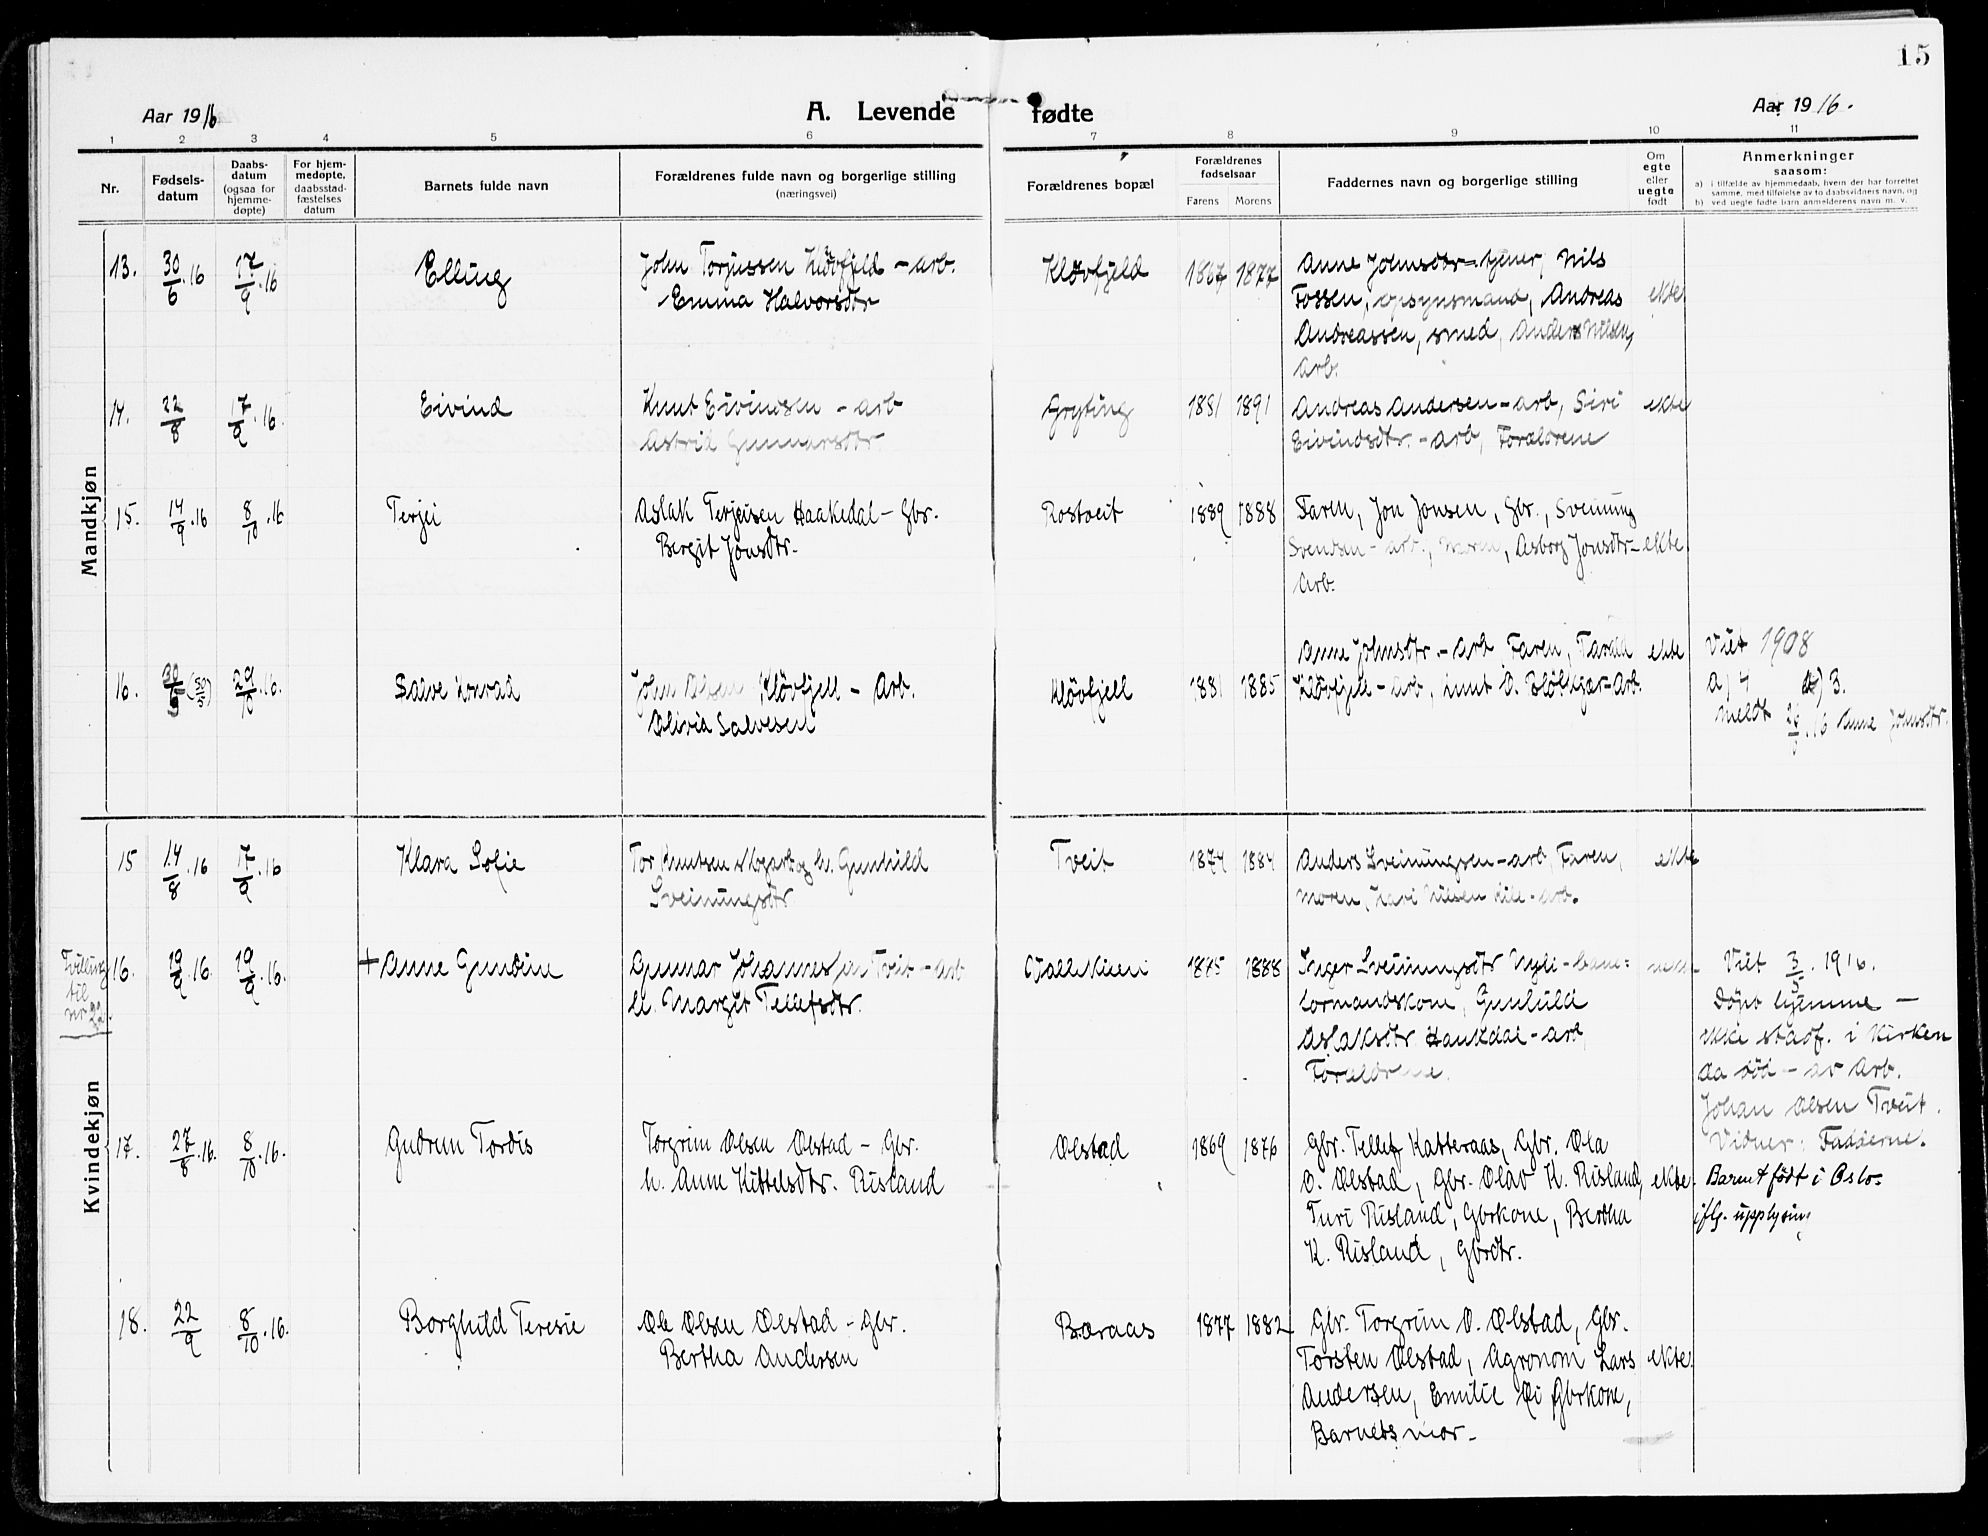 15
Aar 1916
A. Levende fødte
Aar 1916.
1 2 3 4 5 6 7 8 9 10 11
Nr.
Fødsels-
datum
Daabs-
datum
(ogsaa for
hjemme-
døpte)
For hjem-
medøpte,
daabsstad-
fæstelses
datum
Barnets fulde navn
Forældrenes fulde navn og borgerlige stilling
(næringsvei)
Forældrenes bopæl
Forældrenes
fødselsaar
Farens Morens
Faddernes navn og borgerlige stilling
Om
egte
eller
uegte
født
Anmerkninger
saasom:
a) i tilfælde av hjemmedaab, hvem der har forrettet
samme, med tilføielse av to daabsvidners navn, og
b) ved uegte fødte barn anmelderens navn m. v.
Mandkjøn
13. 30/6.16 17/9.16 Elling
John Torjussen Kløvfjeld - arb.
Emma Halvorsdtr
Kløvfjeld 1867 1877
Anne Johnsdtr - tjener, Nils
Fossen, opsynsmand, Andreas
Andreassen, smed, Anders Nilsen,
arb.
ekte
14. 22/8 17/9.16. Eivind
Knut Eivindsen - arb
Astrid Gunnarsdtr.
Gryting 1881 1891
Andreas Andersen - arb, Siri
Eivindsdtr. - arb, Forældrene
ekte
15. 14/9.16 8/10.16 Terjei
Aslak Terjeisen Haakedal - Gbr.
Bergit Jonsdtr.
Rostveit 1889 1888
Faren, Jon Jonsen, Gbr., Sveinung
Svendsen - arb., Moren, Asborg Jonsdtr -
Arb.
ekte
16. 30/5 (30/5) 29/10.16. Salve Konrad
John Olsen Kløvfjell - Arb.
Olivia Salvesen
Kløvfjell 1881 1885
Anne Johnsdtr. - Arb Faren, Tarald
Kløvfjell - Arb, Knut O. - Arb.
ekte
Viet 1908
a) 4 3.
meldt .16 Anne Johnsdtr.
Kvindekjøn
15 14/8.16 17/9.16 Klara Sofie
Tor Knutsen skogarb og h. Gunhild
Sveinungsdtr
Tveit 1874 1884
Anders Sveinungsen - arb, Faren,
Moren, Kari Nilsen - arb.
ekte
Tvilling
til
nr
16. 19/9.16. 19/9.16. + Anne Gundine
Gunnar Johannessen Tveit - arb
h. Margit Tellefsdtr.
1875 1888
Inger Sveinungsdtr - bane-
formandskone, Gunhild
Aslaksdtr - arb,
Forældrene.
Viet 3/5. 1916.
Døpt hjemme -
ikke stadf. i Kirken
da død - av Arb.
Johan Olsen Tveit.
Vidner: Fadderne.
17. 27/8.16. 8/10.16. Gudrun Tordis
Torgrim Olsen Ølstad - Gbr.
h. Anne Kittelsdtr. Risland
Ølstad 1869 1876
Gbr. Tellef Katteraas, Gbr. Ola
O. Ølstad, Gbr. Olav K. Risland,
Turi Risland, Gbrkone, Bertha
K. Risland, Gbrdtr.
ekte.
Barnet født i Oslo
iflg. upplysing
18. 22/9 8/10.16. Borghild Teresie
Ole Olsen Ølstad - Gbr.
Bertha Andersen
Bæraas 1877 1882
Gbr. Torgrim O. Ølstad, Gbr.
Torsten Ølstad, Agronom Lars
Andersen, Emilie Øi Gbrkone,
Barnets mor -
ekte